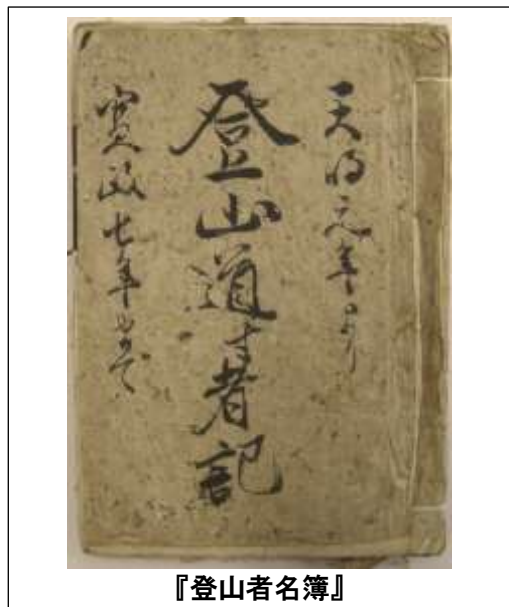 天明元年より
登山道者記
寛政七年まで
『登山者名簿』